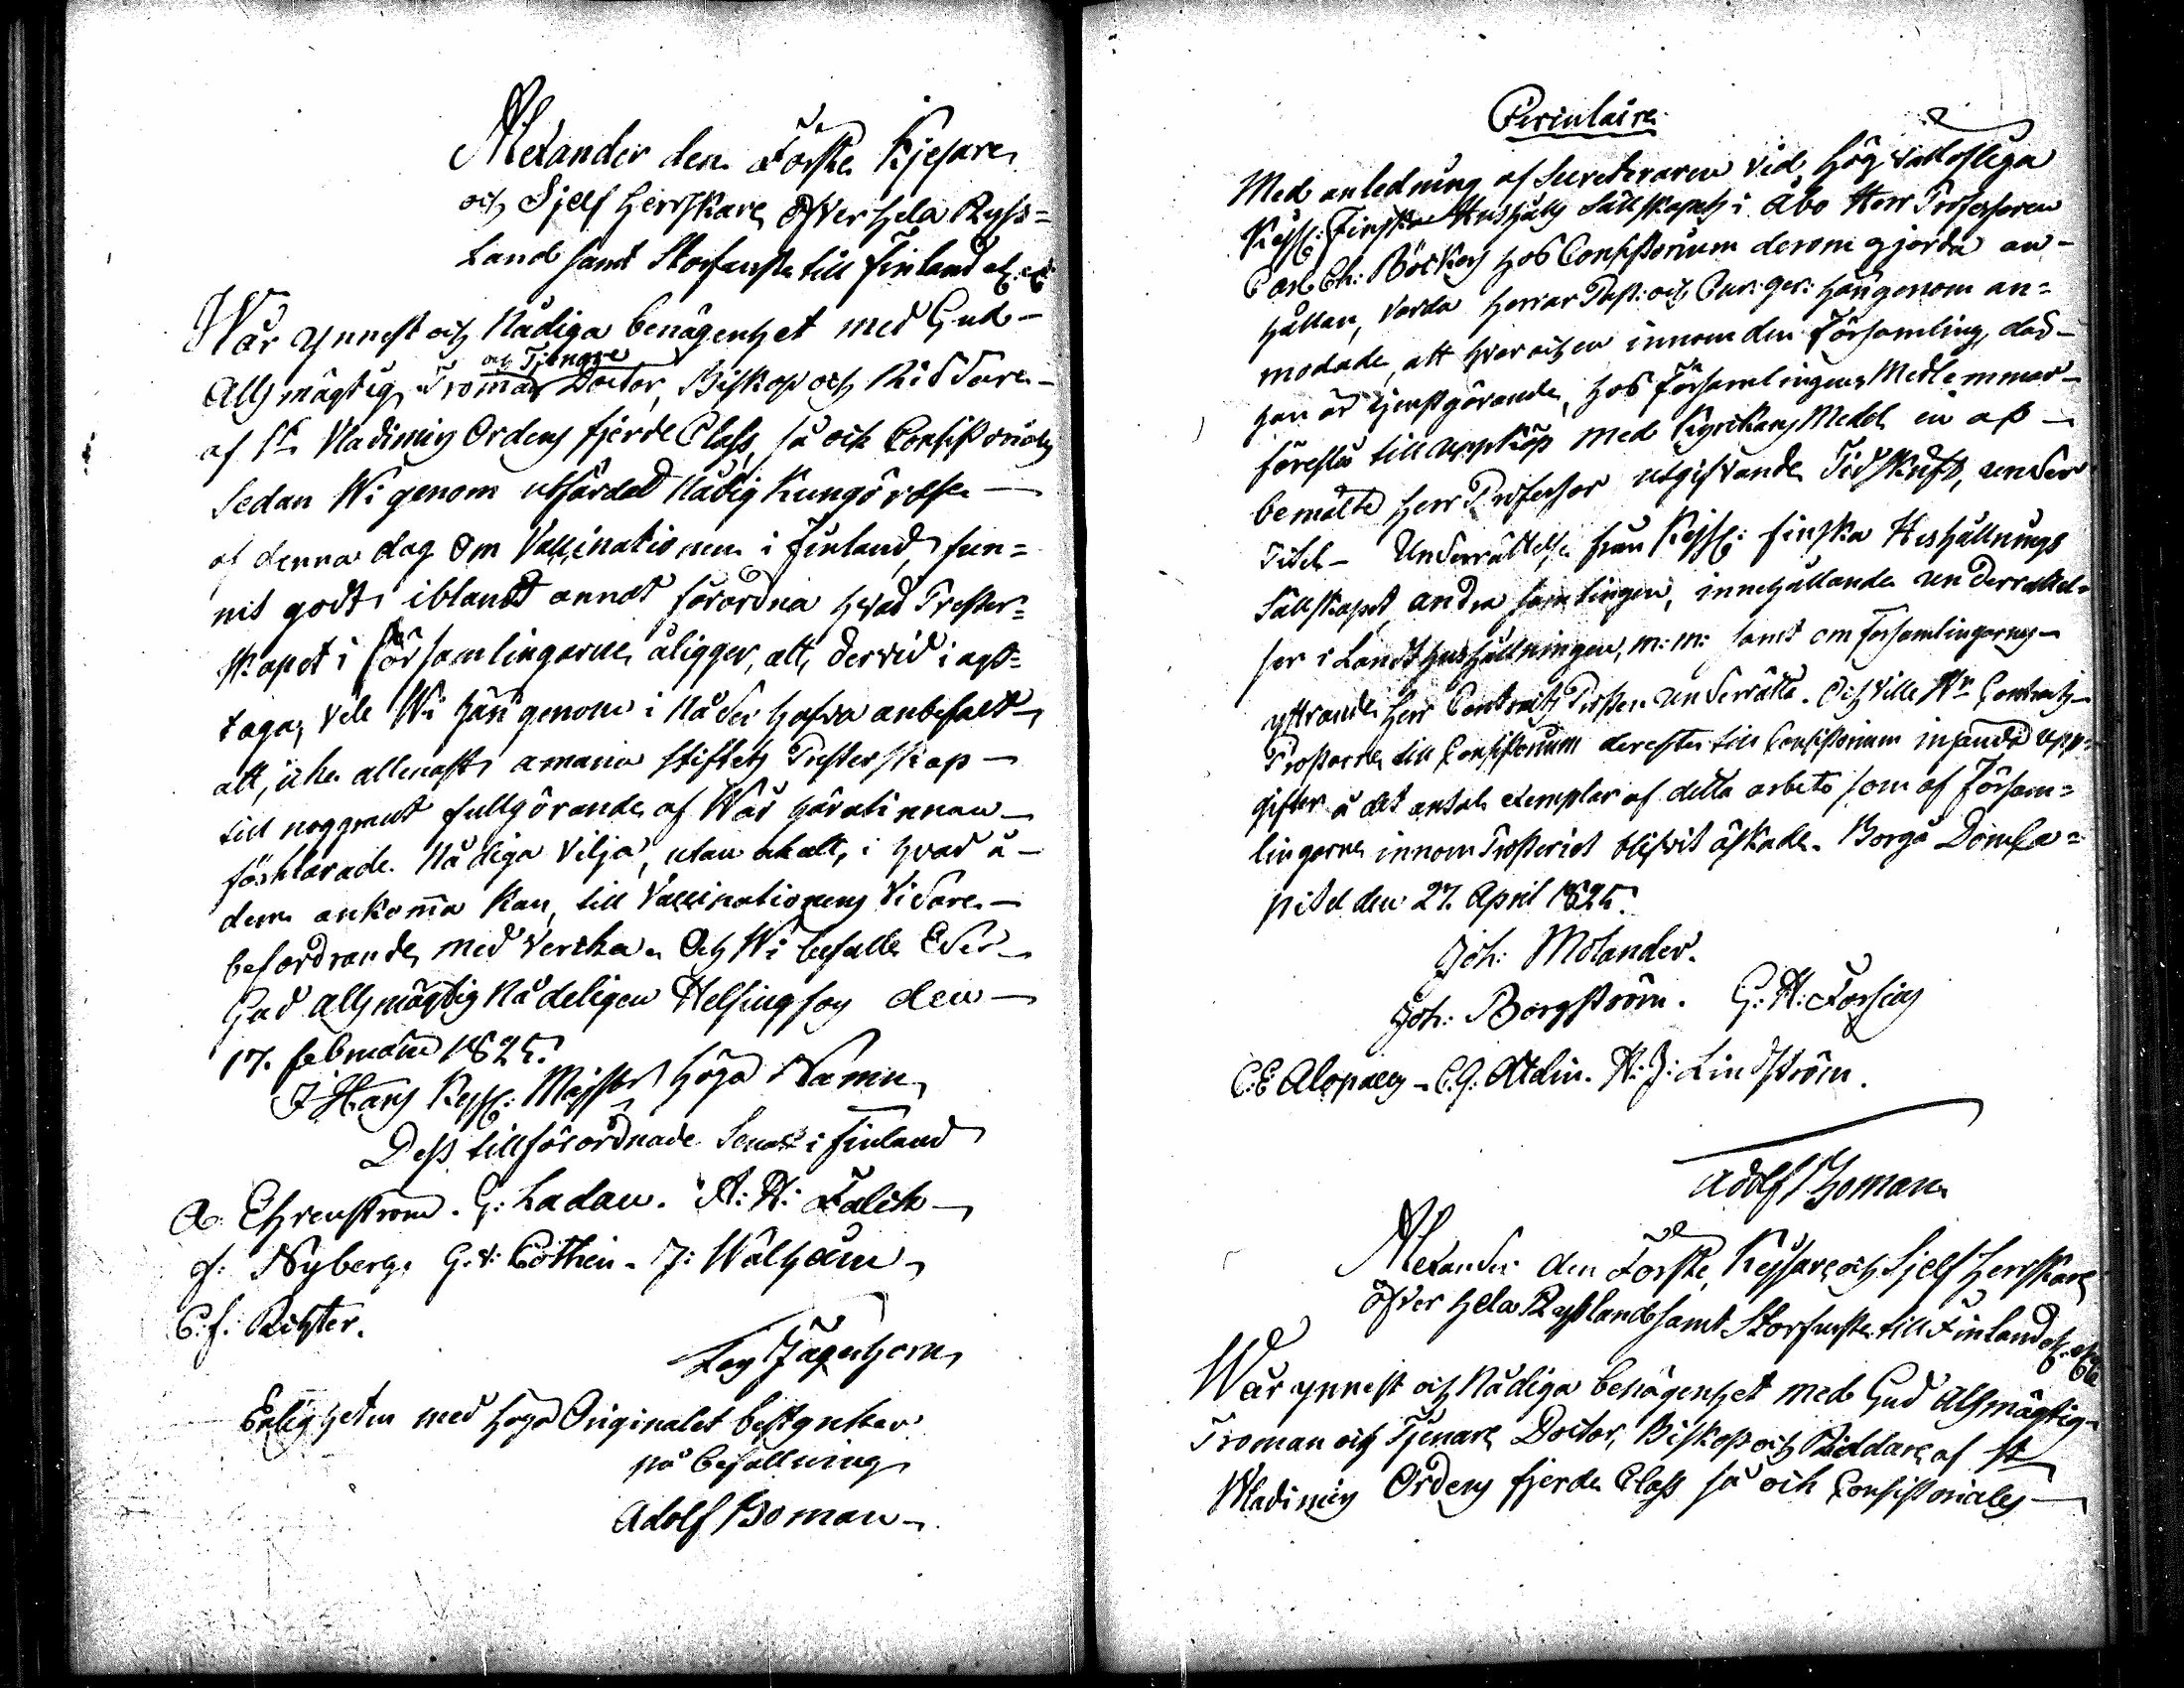 Alexander den Förste Kejsare
och Sjelf Herrskare öfver hela Ryss=
Land samt Storfurste till Finland etc. etc.
Wår ynnest och Nådiga benägenhet med Gud
Allsmägtig, Troman och Tjenare Doctor, Biskop och Riddare
af St. Vladimirs Ordens fjerde Class, så ock Consistoriales
Sedan Wi genom utfärdad Nådig Kungörelse
af denna dag Om Vaccinationen i Finland, fun=
nit godt iblandt annat förordna hvad Prester=
skapet i församlingarne åligger, att dervid i akt=
taga; vele Wi härigenom i Nåder hafva anbefalt
att, icke allenast amana stiftets Presterskap
till noggrant fullgörande af Wår härutinnan
förklarade Nådiga Vilja, utan ock att, i hvad å
dem ankomma kan, till Vaccinationens vidare
befordrande, med verka. Och Wi befalle Eder
Gud allsmägtig Nådeligen Helsingfors den
17. februarii 1825.
I Hans Kejs: Majsts höga Namn
Dess tillförordnade Senat i Finland
A. Ehrenström. G: Ladau. A: H: Falck
J: Nyberg. G. A: Cothen. J: Walheim
C. f. Richter.
Jägerhorn
Enligheten med höga Originalet bestyrker
på befallning
Adolf Boman
Circulaire
Med anledning af Secreteraren vid Höglofliga
Kejs: Finska Hushålls Sällskapet i Åbo Herr Professoren
Carl Ch: Böckers hos Consistorium derom gjorda an-
hållan, varda Herrar Past: och Cur: ger: härigenom an=
modade, att hvar och en innom den Församling, der
han är tjenstgörande, hos Församlingens Medlemmar
föreslå till uppköp med Kyrkans Medel en af
bemälte Herr Professor utgifvande Tidskrift, under
Titel - Underrättelse från Kejs: finska Hushållnings
Sällskapet, andra samlingen, innehållande underrättel=
ser i Landthushållningen, m: m: samt om församlingarnes
yttrande Herr Contracts Prosten underrätta. Och ville Hrr Contracts
Prostarne till Consistorium derefter till Consistorium insända upp=
gifter å det antal exemplar af detta arbete som af Försam=
lingarne innom Prosteriet blifvit äskade. Borgå Domca=
pitel den 27. April 1825.
Joh: Molander.
Joh: Borgström. G: H: Forsius
C: E Alopaeus - C. G: Ahlin. A: J: Lindström.
Adolf Boman
Alexander den Förste, Kejsare och Sjelf Herrskare
öfver hela Ryssland samt Storfurste till Finland etc. etc. etc
Wår ynnest och Nådiga benägenhet med Gud Allsmägtig
Troman och Tjenare, Doctor, Biskop och Riddare af St
Wladimirs Ordens fjerde Class så ock Consistoriales